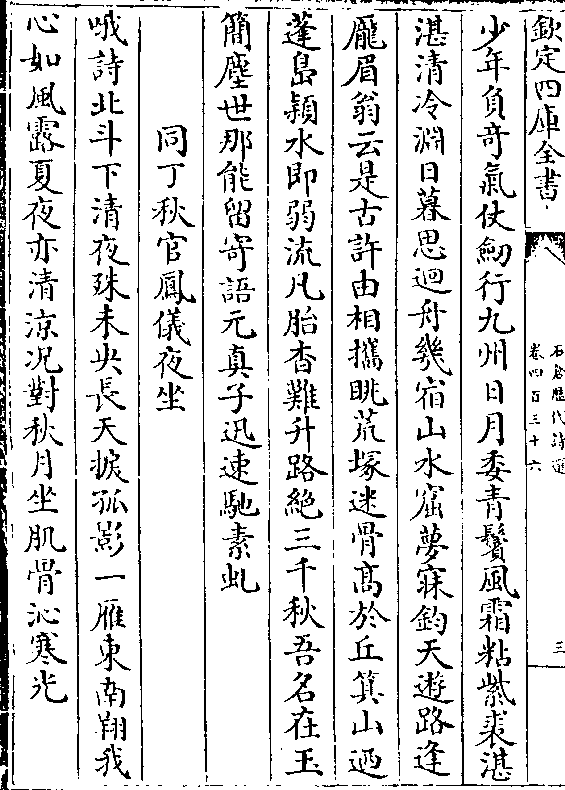 欽定四庫全書
石倉歷代詩選
卷四百三十六
三
少年負竒氣仗劒行九州日月委青鬢風霜粘紫裘湛
湛清冷淵日暮思迴舟幾宿山水窟夢寐鈞天遊路逢
龎眉翁云是古許由相攜眺荒塚迷骨髙於丘箕山迺
蓬島潁水即弱流凡胎杳難升路絶三千秋吾名在玉
簡塵世那能留寄語元真子迅速馳素虬
同丁秋官鳳儀夜坐
哦詩北斗下清夜殊未央長天捩孤影一雁東南翔我
心如風露夏夜亦清涼况對秋月坐肌骨沁寒光